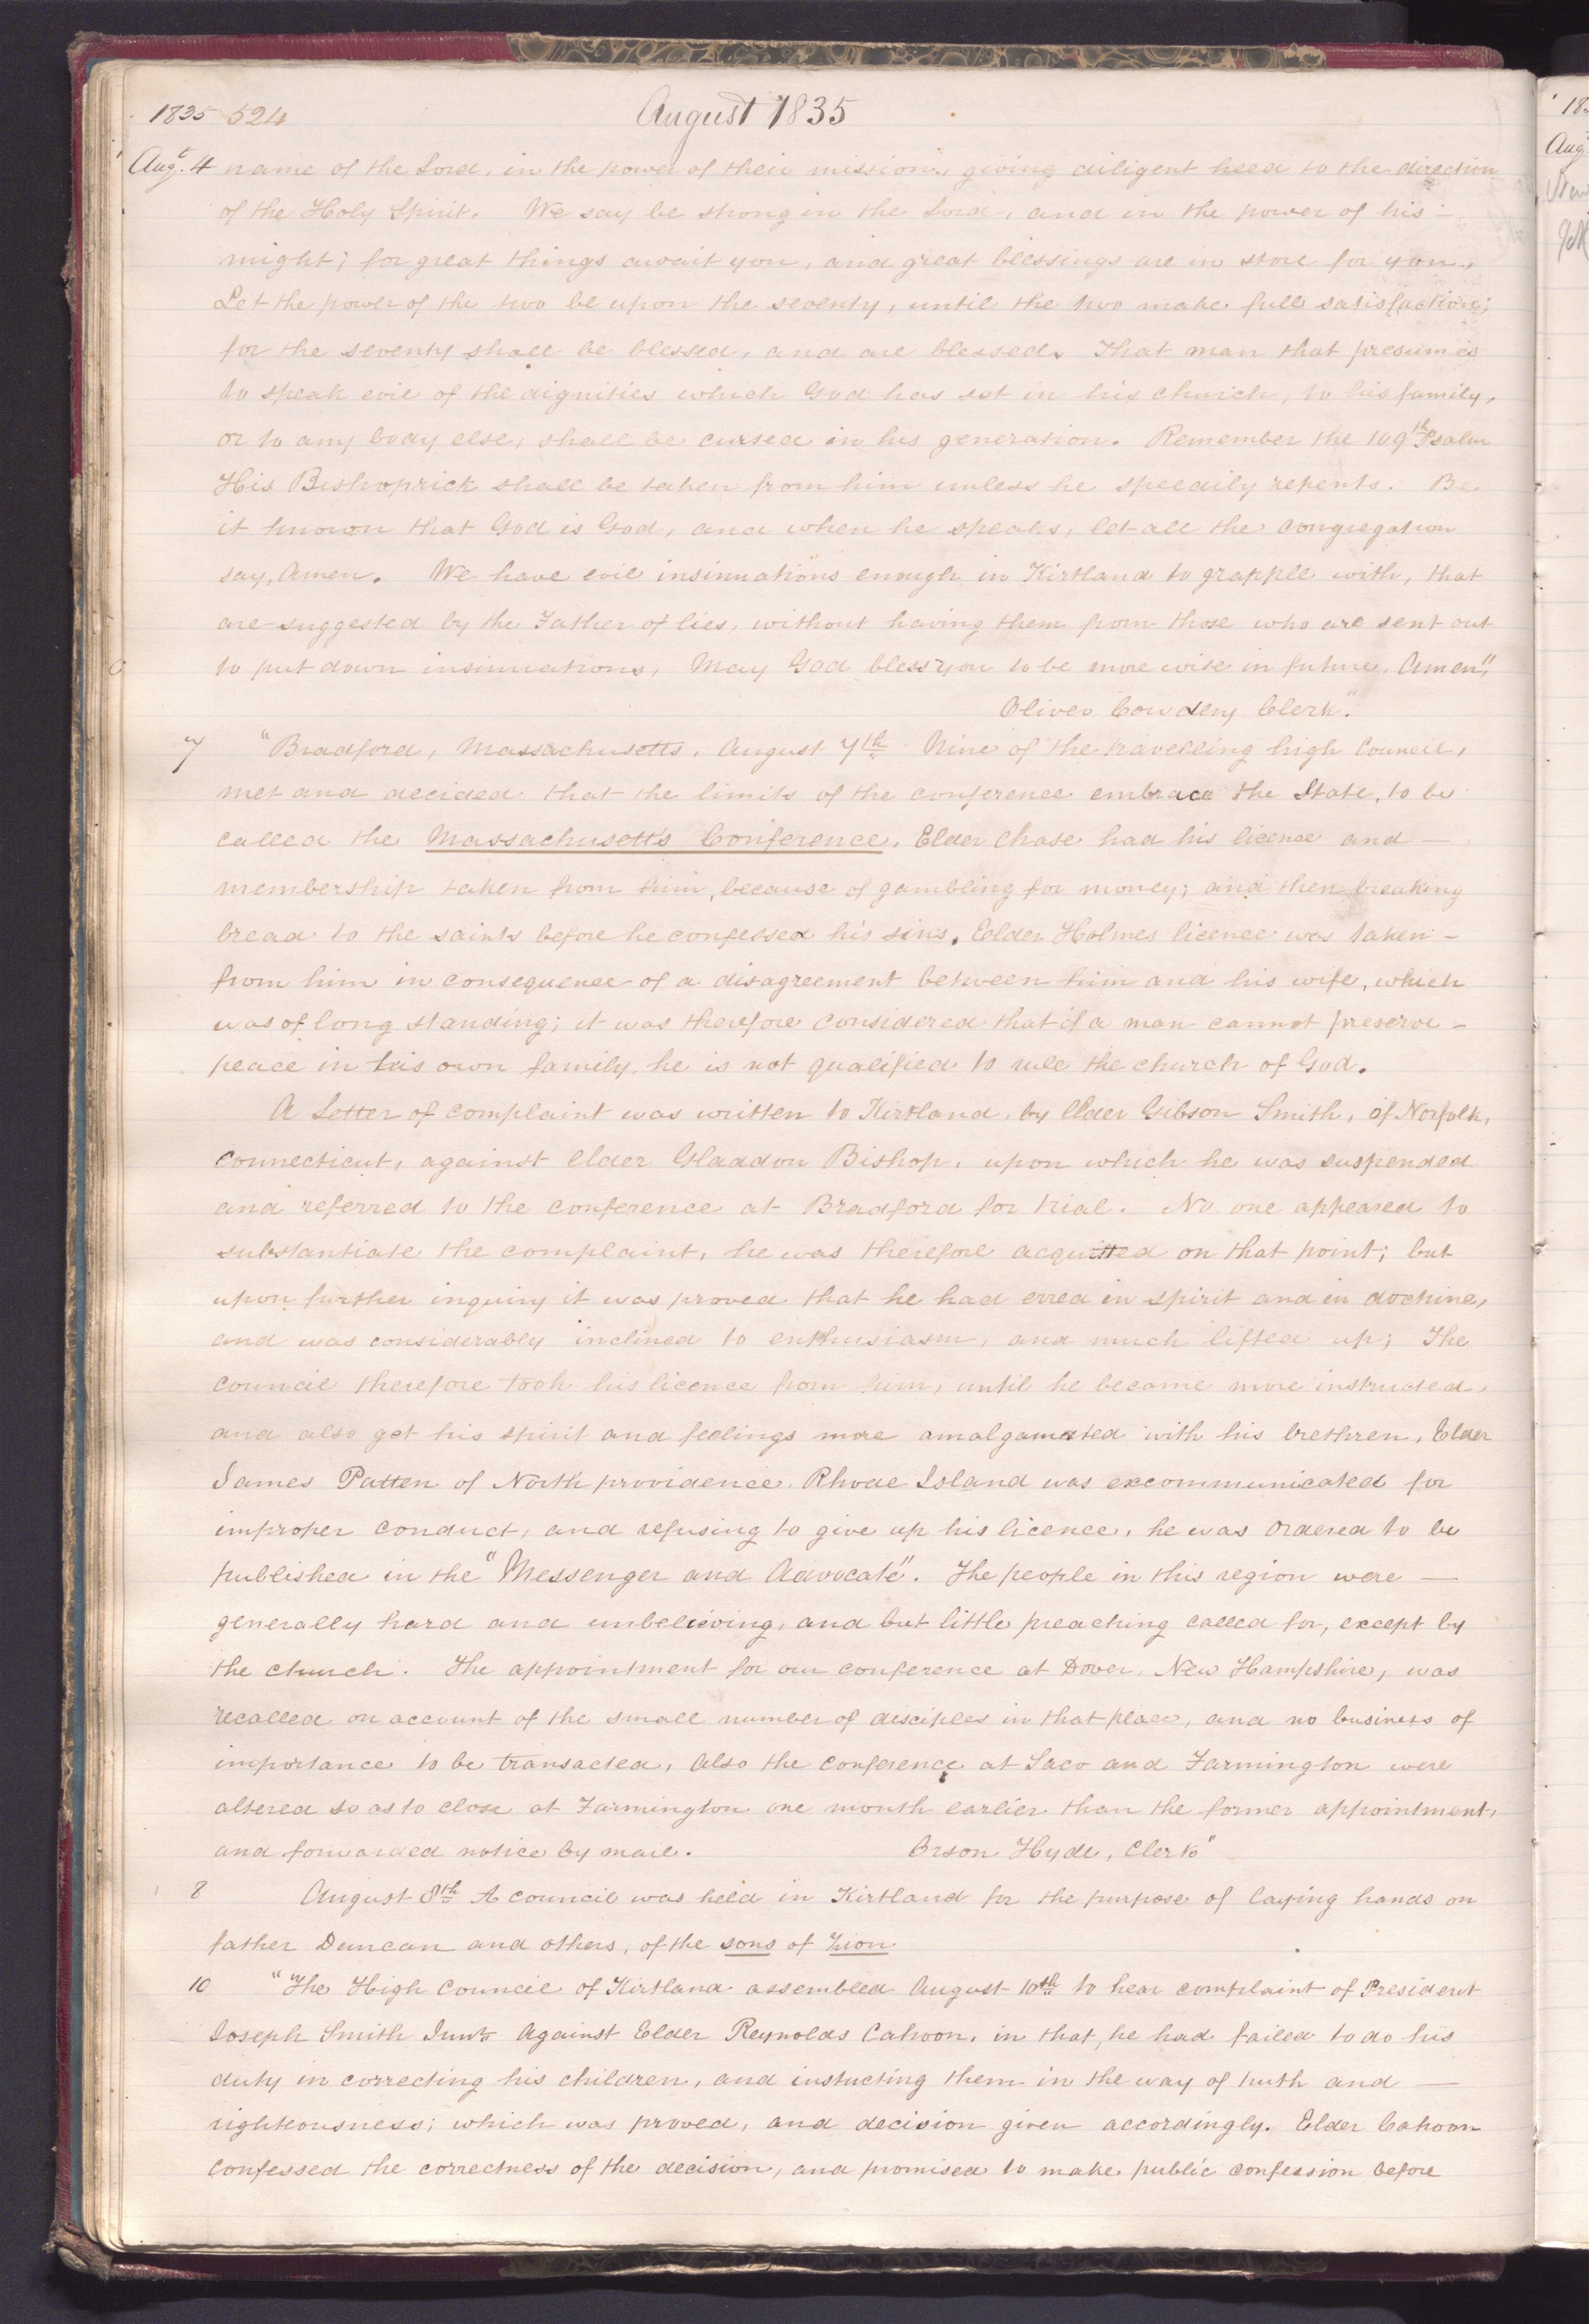 1835 524 August 1835
Augt. 4 name of the Lord, in the power of their mission, giving diligent heed to the direction
of the Holy Spirit. We say be strong in the Lord, and in the power of his –
might; for great things await you, and great blessings are in store for you.,
Let the power of the two be upon the seventy, until the two make full satisfaction;
for the seventy shall be blessed, and are blessed. That man that presumes
to speak evil of the dignities which God has set in his church, to his family,
or to any body else, shall be cursed in his generation. Remember the 109th Psalm
His Bishoprick shall be taken from him unless he speedily repents. Be
it known that God is God, and when he speaks, let all the congregation
say, Amen. We have evil insinuations enough in Kirtland to grapple with, that
are suggested by the Father of lies, without having them from those who are sent out
to put down insinuations, May God bless you to be more wise in future. Amen"
Oliver Cowdery Clerk."
7 "Bradford, Massachusetts, August 7th Nine of the travelling high Council,
met and decided that the limits of the conference embrace the State, to be
called the Massachusetts Conference. Elder Chase had his licence and —
membership taken from him, because of gambling for money; and then breaking
bread to the saints before he confessed his sins. Elder Holmes licence was taken –
from him in consequence of a disagreement between him and his wife, which
was of long standing; it was therefore considered that if a man cannot preserve –
peace in his own family, he is not qualified to rule the church of God.
A Letter of complaint was written to Kirtland, by Elder Gibson Smith, of Norfolk,
Connecticut, against elder Gladdon Bishop, upon which he was suspended
and referred to the conference at Bradford for trial. No one appeared to
substantiate the complaint, he was therefore acquitted on that point; but
upon further inquiry it was proved that he had erred in spirit and in doctrine,
and was considerably inclined to enthusiasm, and much lifted up; The
council therefore took his licence from him, until he became more instructed,
and also get his spirit and feelings more amalgamated with his brethren, Elder
James Patten of North providence. Rhode Island was excommunicated for
improper conduct, and refusing to give up his licence, he was ordered to be
published in the "Messenger and Advocate". The people in this region were —
generally hard and unbelieving, and but little preaching called for, except by
the church. The appointment for our conference at Dover, New Hampshire, was
recalled on account of the small number of disciples in that place, and no business of
importance to be transacted, Also the conference at Saco and Farmington were
altered so as to close at Farmington one month earlier than the former appointment,
and forwarded notice by mail. Orson Hyde, Clerk"
8 August 8th A council was held in Kirtland for the purpose of laying hands on
father Duncan and others, of the sons of Zion
10 "The High Council of Kirtland assembled August 10th to hear complaint of President
Joseph Smith Junr. Against Elder Reynolds Cahoon, in that, he had failed to do his
duty in correcting his children, and instucting them in the way of truth and —
righteousness; which was proved, and decision given accordingly. Elder Cahoon
confessed the correctness of the decision, and promised to make public confession before